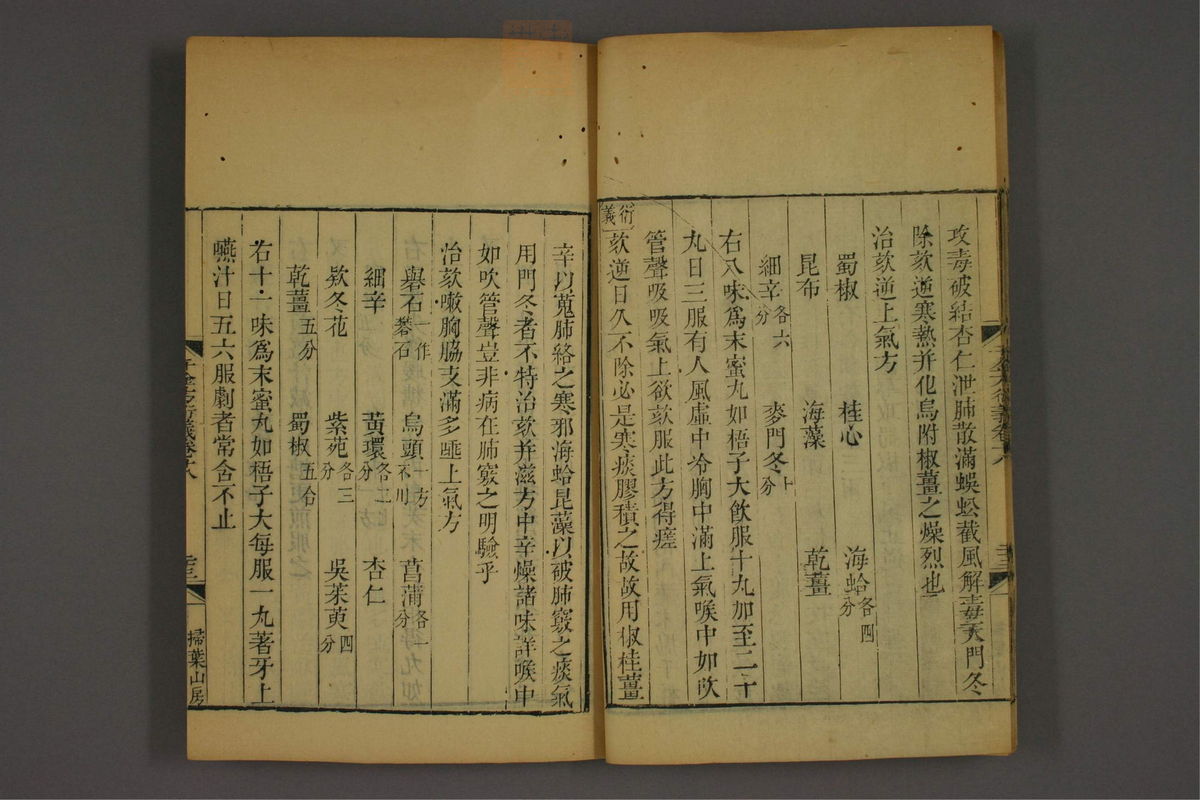 攻毒破結杏仁泄肺散滿蜈蚣截風解毒天門冬
除欬逆寒熱并化烏附椒薑之燥烈也
治欬逆上氣方
蜀椒 桂心 海蛤各四分
昆布 海藻 乾薑
細辛各六分 麥門冬十分
右八味爲末蜜丸如梧子大飲服十丸加至二十
丸日三服有人風虛中冷胸中滿上氣喉中如吹
管聲吸吸氣上欲欬服此方得瘥
衍義欬逆日久不除必是寒痰膠積之故故用椒桂薑
辛以蒐肺絡之寒邪海蛤昆藻以破肺竅之痰氣
用門冬者不特治欬并滋方中辛燥諸味詳喉中
如吹管聲豈非病在肺竅之明驗乎
治欬嗽胸脇支滿多唾上氣方
礜石一作礬石 烏頭一方不用 菖蒲各一分
細辛 黃環各二分 杏仁
欵冬花 紫苑各三分 吳茱萸四分
乾薑五分 蜀椒五合
右十一味爲末蜜丸如梧子大每服一丸著牙上
嚥汁日五六服劇者常含不止
掃葉山房